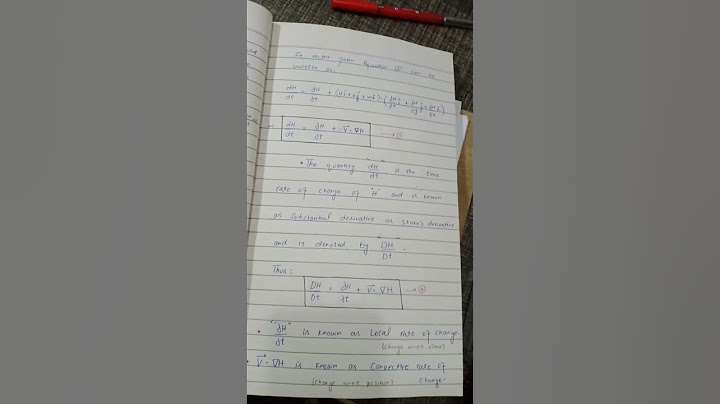 In vector form Equation ② can be
written as
dH/dt = ∂H/∂t + (uî + vĵ + wk̂) · (∂H/∂x î + ∂H/∂y ĵ + ∂H/∂z k̂)
dH/dt = ∂H/∂t + V⃗ · ∇H
• The quantity "dH/dt" is the time
rate of change of "H" and is known
as substantial derivative or Stoke's derivative
and is denoted by "DH/Dt".
Thus;
DH/Dt = ∂H/∂t + V⃗ · ∇H
• "∂H/∂t" is known as Local rate of change.
(change w.r.t time)
• V⃗ · ∇H is known as Convective rate of
(change w.r.t position) change.